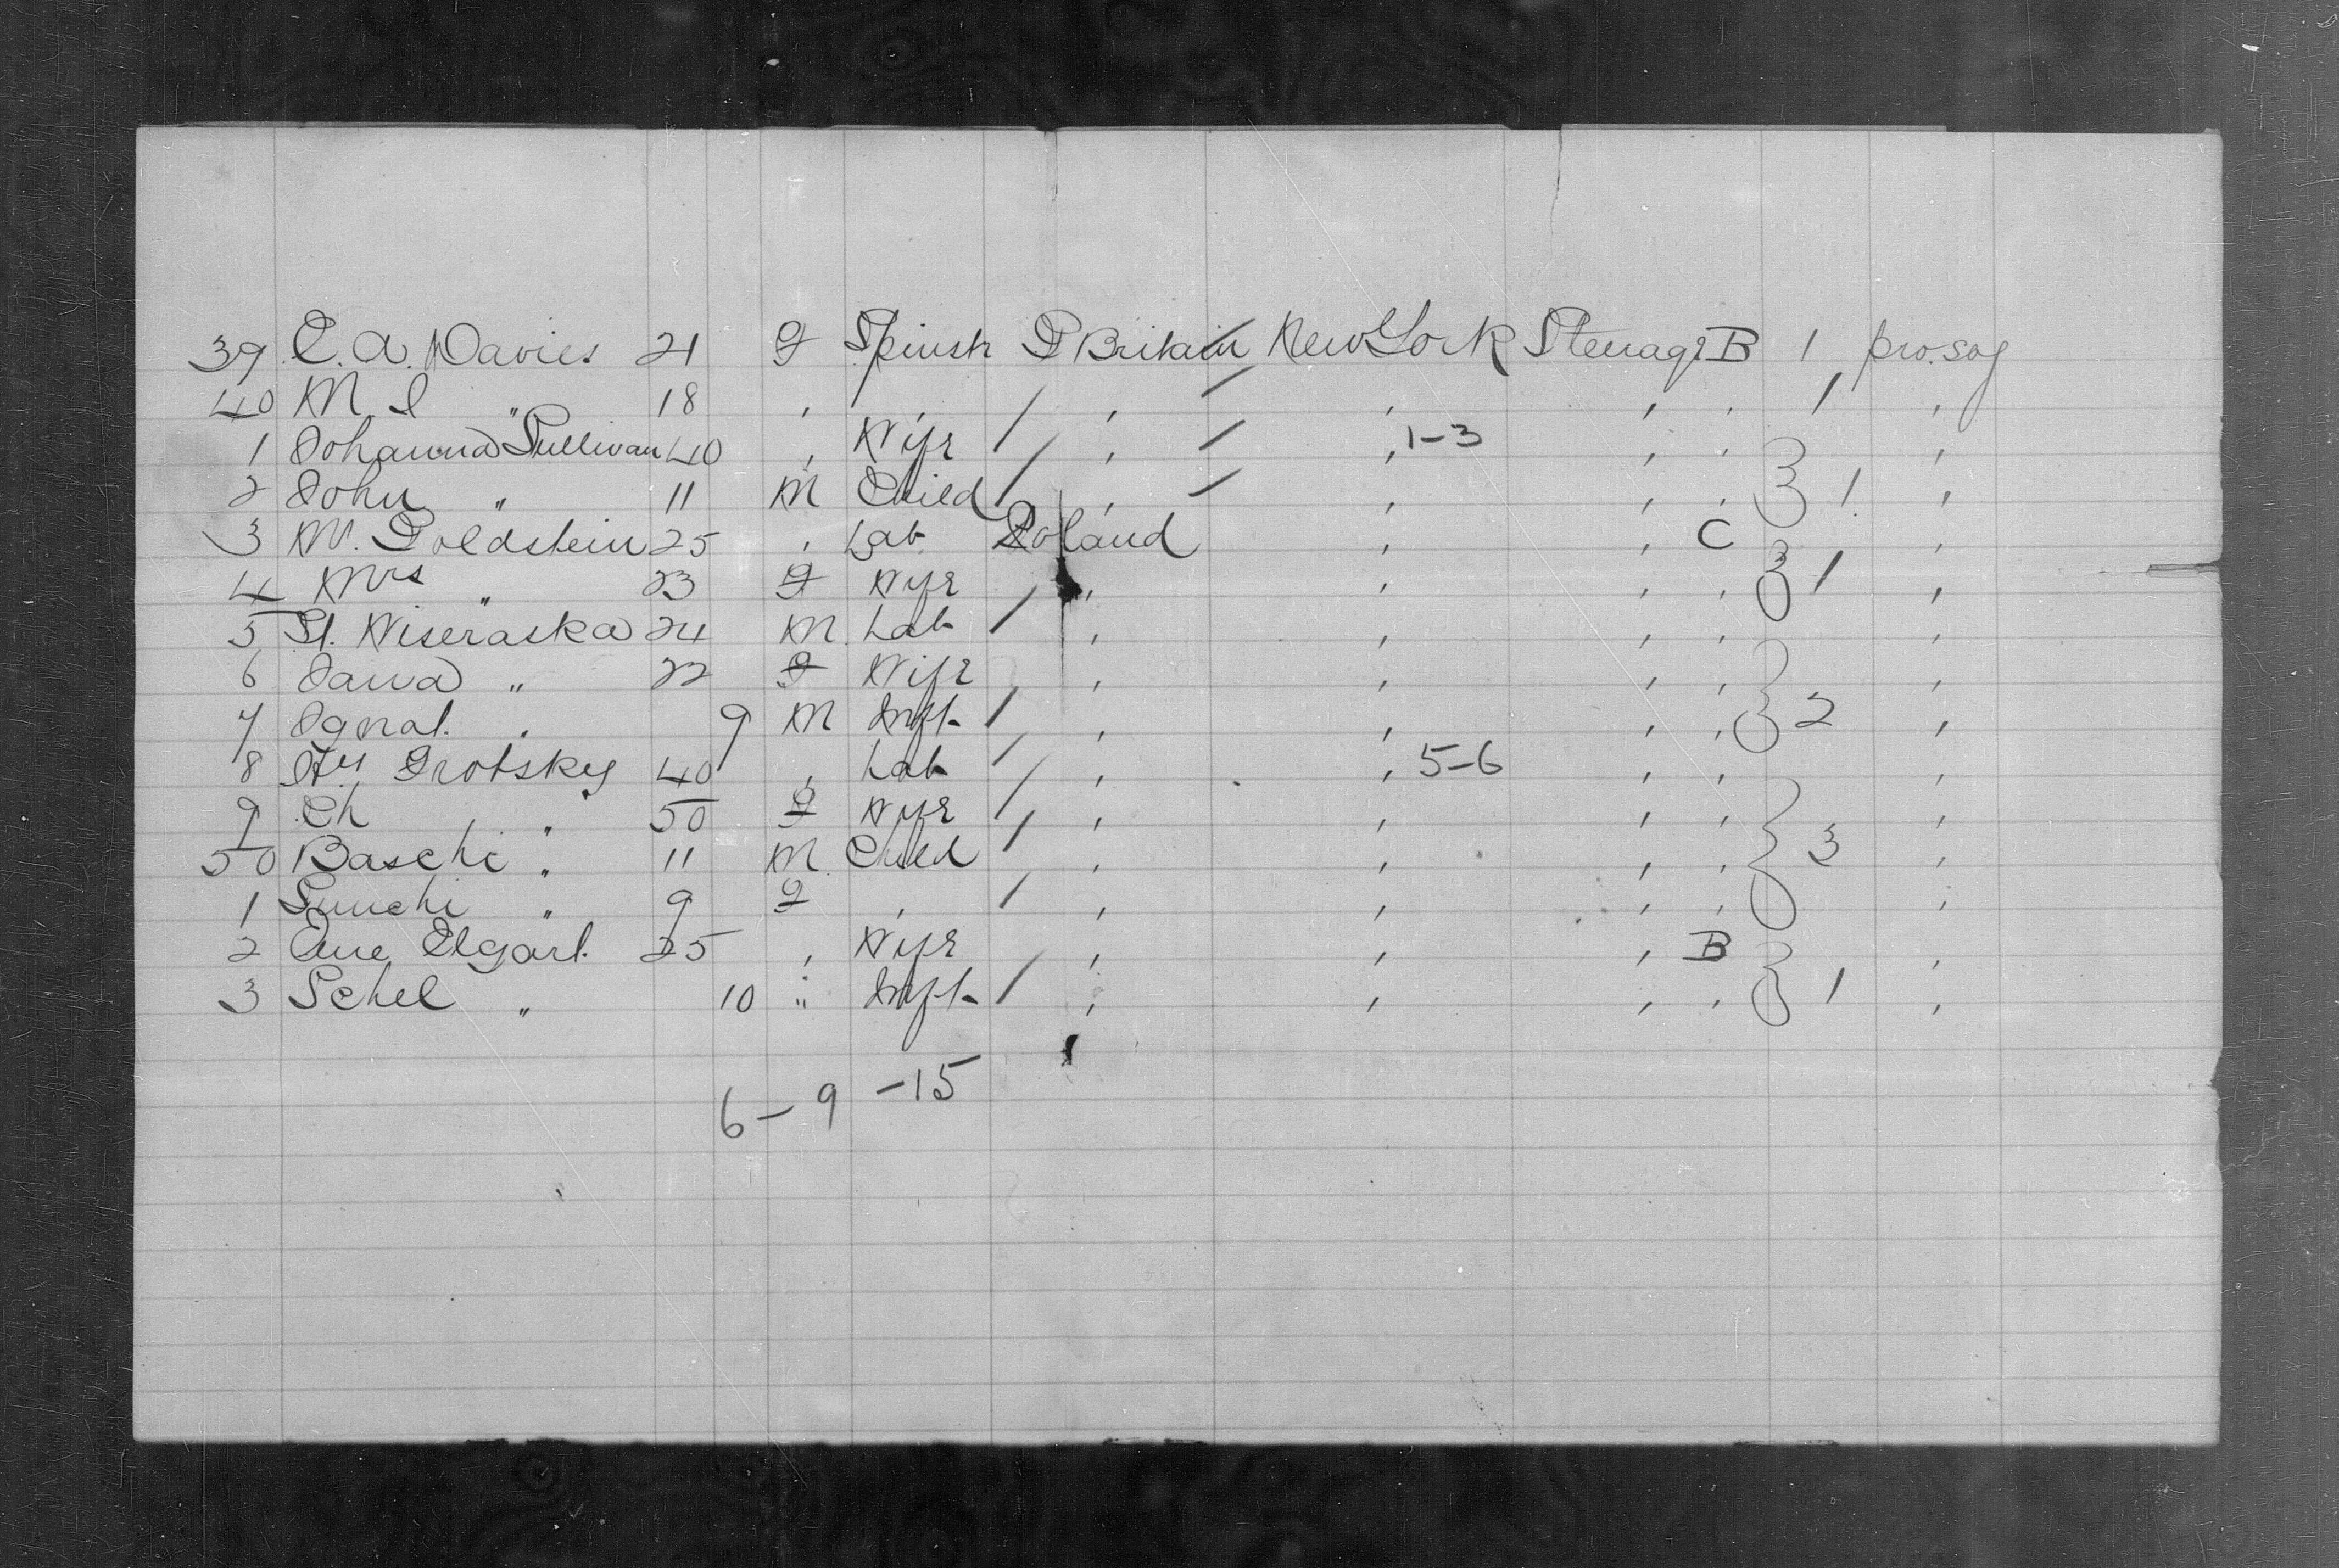 39 C. A. Davies 21 F Spinstr G Britain New York Steerage B 1 pro. soj
40 M. J " 18 , , / , / , , , 1 ,
1 Johanna Sullivan 40 , Wife / , / , 1-3 , , ,
2 John " 11 M Child / , / , , , 1 ,
3 M. Goldstein 25 , Lab Poland , , C ,
4 Mrs " 23 F Wife / , , , , 1 ,
5 St. Wiseraska 24 M Lab / , , , , ,
6 Jawa " 22 F Wife , , , , ,
7 Ignat. " 9 M Inft / , , , , 2 ,
8 Hy Grotskey 40 , Lab / , , 5-6 , , ,
9 Ch " 50 F Wife / , , , , ,
50 Baschi " 11 M Child / , , , , 3 ,
1 " 9 F , / , , , , ,
2 Elgart. 25 , Wife , , , B ,
3 Schel " 10 " Inft / , , , , 1 ,
6 - 9 - 15